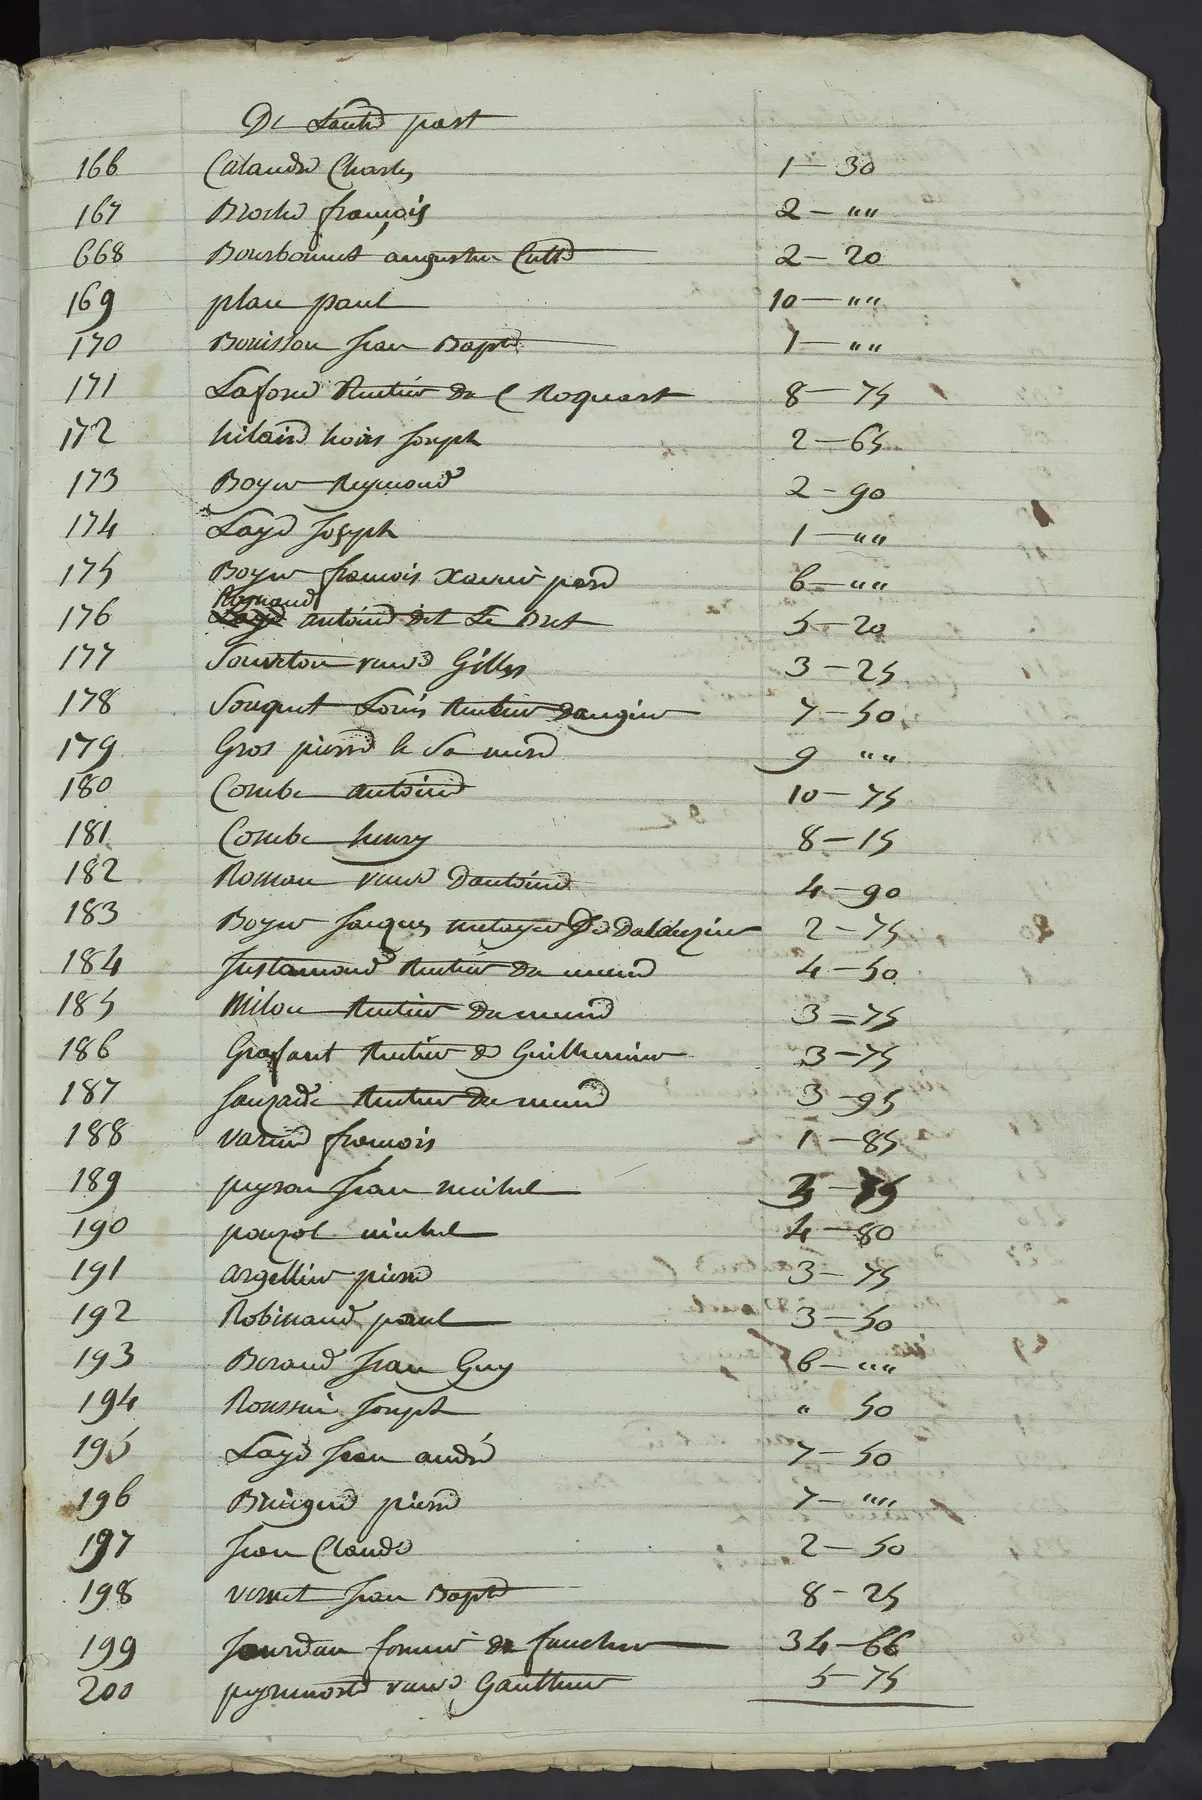 De Lautre part
166 Calandre Charles 1 – 30
167 Broche françois 2 – ""
668 Bourbonnet augustin Cult 2 – 20
169 plan paul 10 – ""
170 Bouisson Jean Bapte 1 – ""
171 Laford Rentier de C Roquart 8 – 75
172 hilaire hoirs Joseph 2 – 65
173 Boyer Reymond 2 – 90
174 Laye Joseph 1 – ""
175 Boyer françois Xavier pere 6 – ""
Raynaud
176 antoine dit Le Bret 5 – 20
177 Sourton veuve Gilles 3 – 25
178 Souquet Louis Rentier daugier 7 – 50
179 Gros pierre 9 ""
180 Combe antoine 10 – 75
181 Combe henry 8 – 15
182 Roman veuve dantoine 4 – 90
183 Boyer Jacques metayer De 2 – 75
184 Justamond Rentier du meme 4 – 50
185 Milon Rentier du meme 3 = 75
186 Grafant Rentier de Guilhermier 3 – 75
187 Sauzade Rentier du meme 3 – 95
188 varene françois 1 – 85
189 peyron Jean michel 3 – 75
190 pouzol michel 4 – 80
191 argellier pierre 3 – 75
192 Robinaud paul 3 – 50
193 Beraud Jean Guy 6 – ""
194 Roussin Joseph " 50
195 Laye Jean andré 7 – 50
196 Bringuer pierre 7 – ""
197 Jean Claude 2 – 50
198 vernet Jean Bapte 8 – 25
199 Jourdan fermier de faucher 34 – 66
200 peyremorte veuve Gauthier 5 – 75